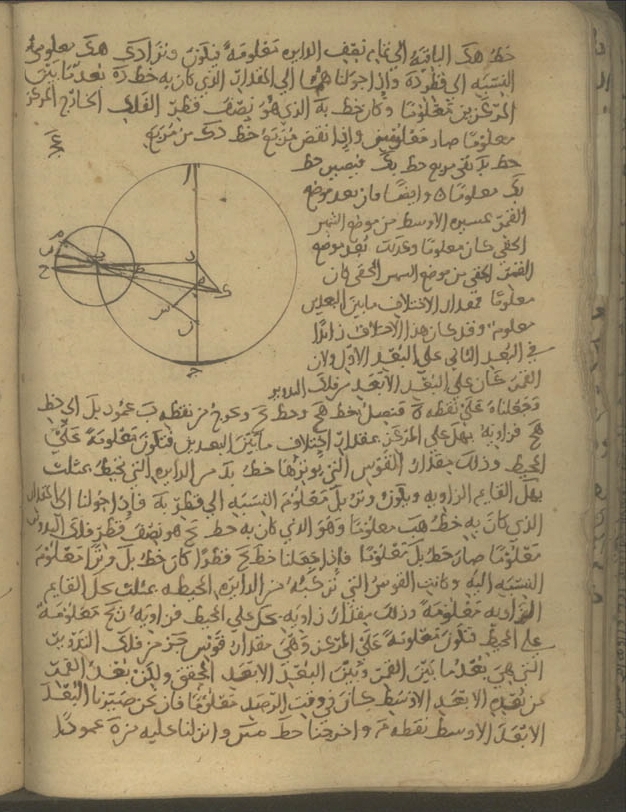 خط هك الباقية الى تمام نصف الدايره معلومة فيكون وتر ادك هك معلومى
النسبة الى قطر دة واذا حولناهما الى المقدار الذي كان به خط دة بعد ما بين
المركزين معلومًا وكان خط بد الذي هو نصف قطر الفلك الخارج المركز
معلومًا صار معلومين واذا نقص مربع خط دك من مربع
خط بد بقى مربع خط بك فيصير خط
بك معلومًا وايضًا فان بعد موضع
القمر بمسيره الاوسط من موضع الشمس
الخفي كان معلومًا وكان بعد موضع
القمر الخفي من موضع الشمس الخفي كان
معلومًا فمقدار الاختلاف ما بين البعدين
معلوم وقد كان هذا الاختلاف زائدًا
في البعد الثاني على البعد الاول ولان
القمر كان على البعد الابعد من فلك التدوير
وجعلناه على نقطة ح فنصل خط هح وخط بح ونخرج من نقطه ب عمود بل الى خط
هح فزاوية بهل على المركز بمقدار اختلاف ما بين البعدين فتكون معلومة على
المحيط وذلك مقدار القوس التي يوترها خط بل من الدايره التي تحيط بمثلث
بهل القايم الزاويه ويكون وتر بل معلوم النسبه الى قطر به فاذا حولنا الى المقدار
الذي كان به خط هب معلومًا وهو الذي كان به خط بح هو نصف قطر فلك التدوير
معلومًا صار خط بل معلومًا فاذا جعلنا خط بح قطرًا كان خط بل وترًا معلوم
النسبه اليه وكانت القوس التي توتره من الدايره المحيطه بمثلث بحل القايم
الزاويه معلومة وذلك مقدار زاويه بحل على المحيط فزاويه معلومة
على المحيط فتكون معلومة على المركز وهي مقدار قوس من فلك التدوير
التي هي بعد ما بين القمر وبين البعد الابعد الحقيقي ولكن بعد القمر
من بعده الابعد الاوسط كان في وقت الرصد معلومًا فان نحن صيرنا البعد
الابعد الاوسط نقطة م واخرجنا خط وانزلنا عليه من ه عمودًا